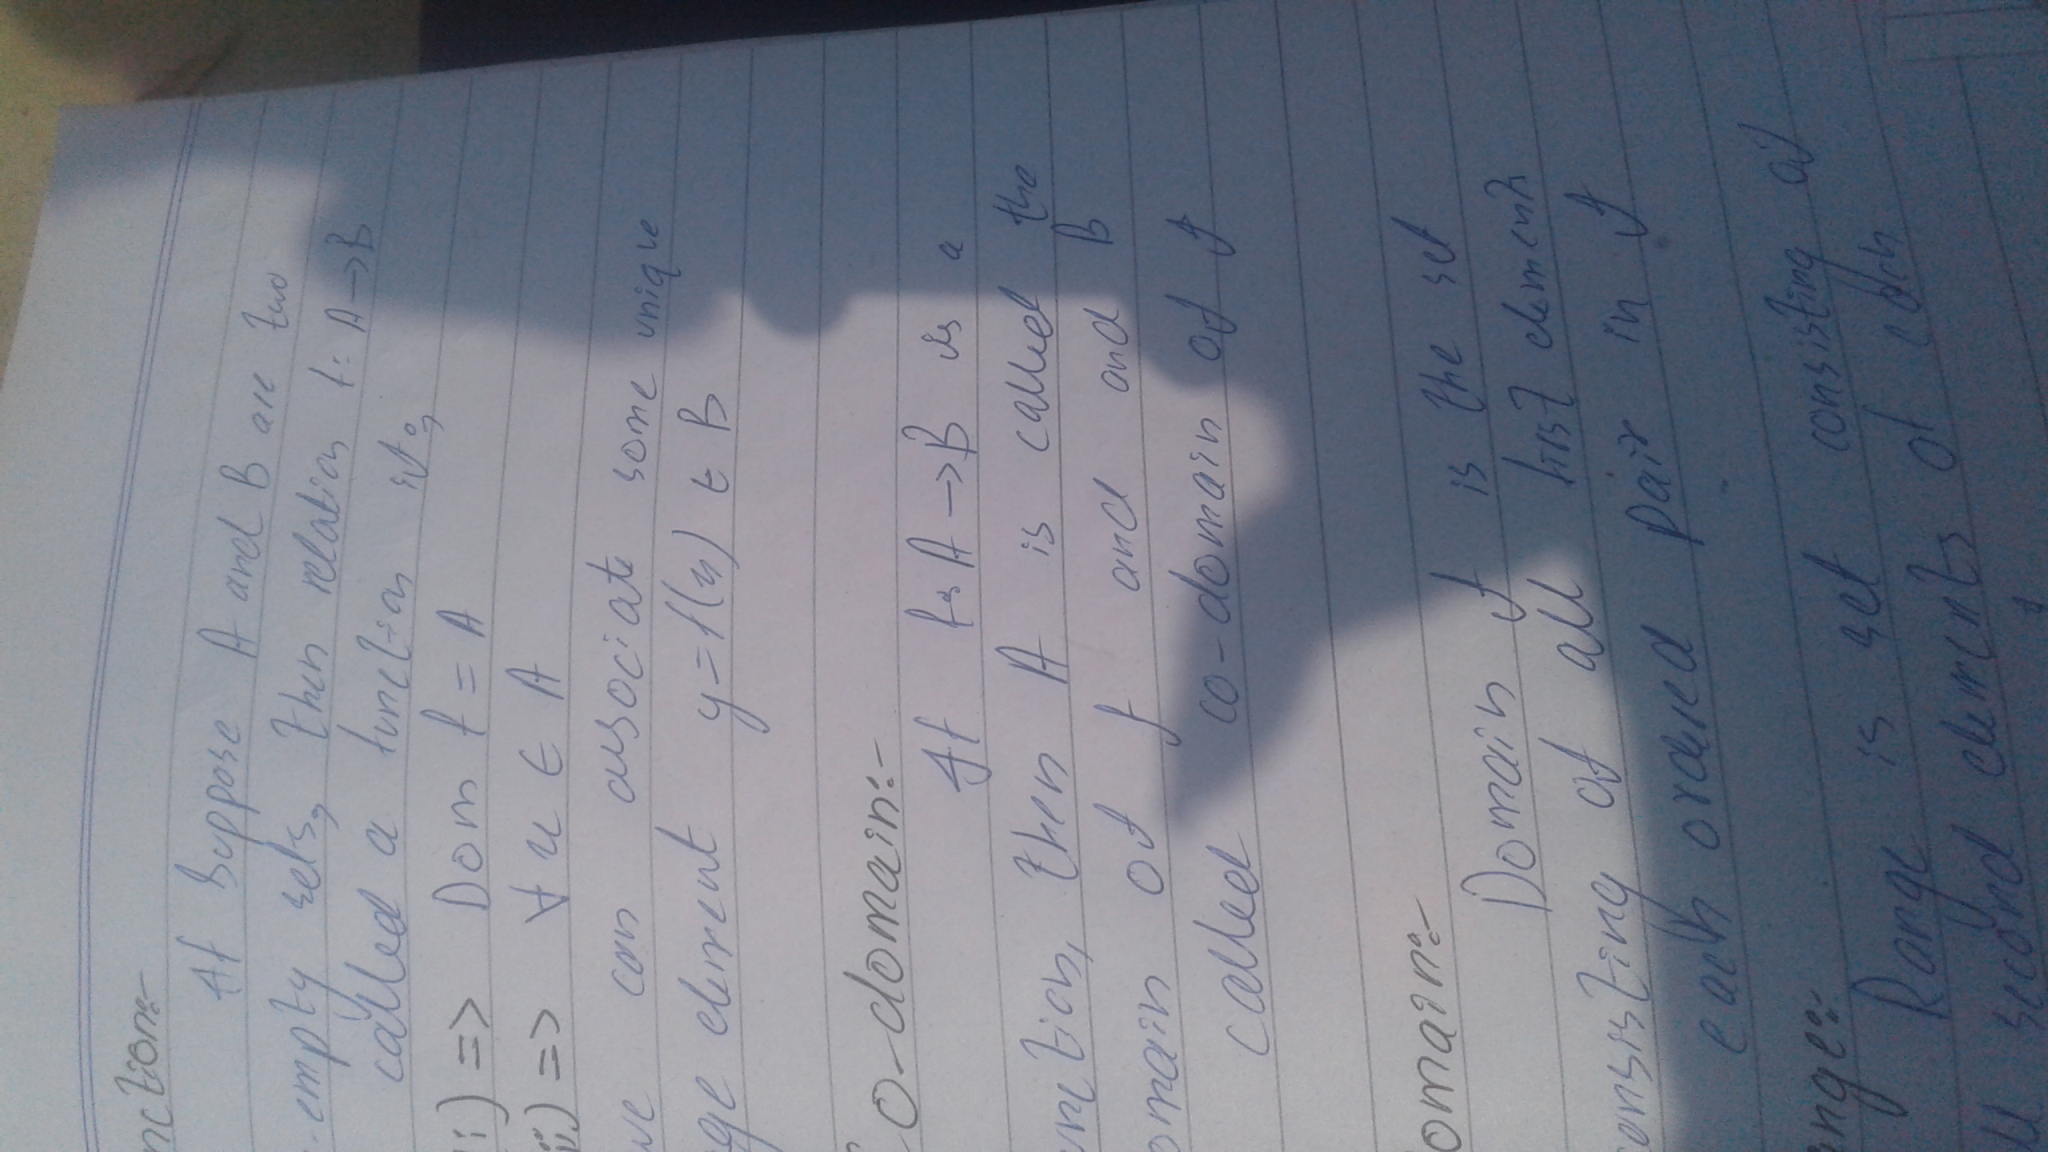 nction:-
If Suppose A and B are two
-empty sets, then relation f: A→B
called a function if;
(i) => Dom f = A
ii) => ∀ x ∈ A
we can associate some unique
ge element y=f(x) ∈ B
Co-domain:-
If f: A→B is a
unction, then A is called the
omain of f and and B
called co-domain of f
omain:-
Domain f is the set
consisting of all first elements
each ordered pair in f
ange:-
Range is set consisting of
ll second elements of each